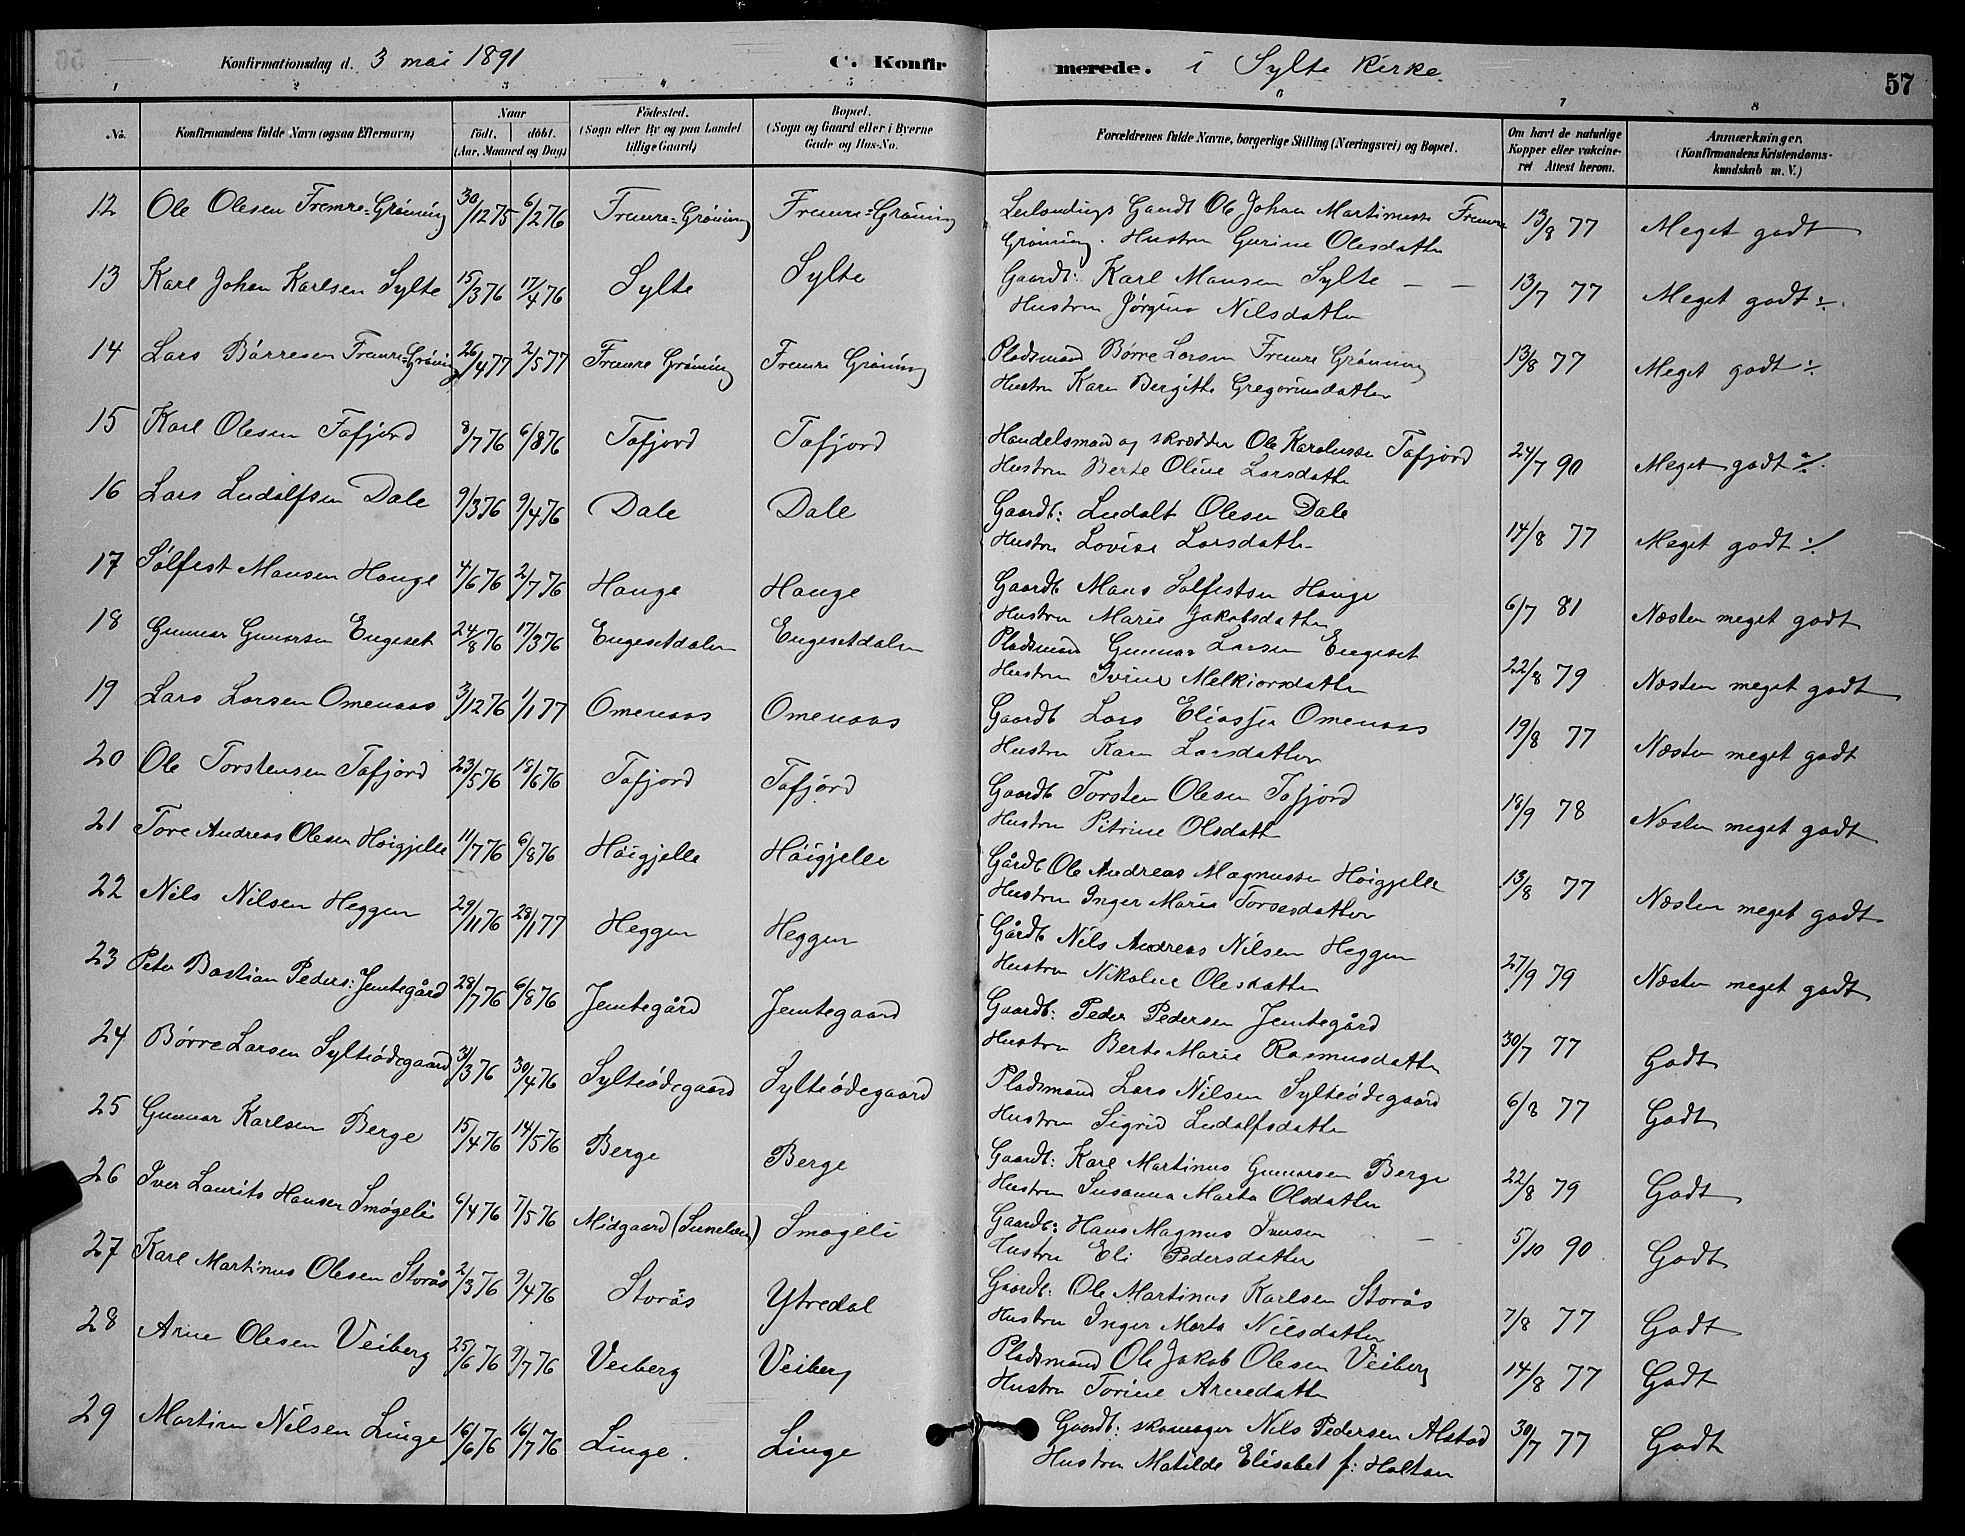 Konfirmationsdag d. 3 mai 1891 C. Konfirmerede. i Sylte Kirke. 57
1 2 3 4 5 6 7 8
No. Konfirmandens fulde Navn (ogsaa Efternavn) Naar født, døbt. (Aar, Maaned og Dag) Fødested. (Sogn eller By og paa Landet tillige Gaard) Bopæl. (Sogn og Gaard eller i Byerne Gade og Hus-No. Forældrenes fulde Navne, borgerlige Stilling (Næringsvei) og Bopæl. Om havt de naturlige Kopper eller vakcineret Attest herom. Anmærkninger. (Konfirmandens Kristendomskundskab m. V.)
12 Ole Olesen Fremre-Grøning 30/12 75 6/2 76 Fremre-Grøning Fremre-Grøning Leilendings Gaardb Ole Johan Martinussen Fremre Grøning. Hustru Gurine Olesdatter 13/8 77 Meget godt
13 Karl Johan Karlsen Sylte 15/3 76 17/4 76 Sylte Sylte Gaardb: Karl Mansen Sylte — —
Hustru Jørgine Nilsdatter 13/7 77 Meget godt ÷
14 Lars Børresen Fremre-Grøning 26/4 77 2/5 77 Fremre Grøning Fremre Grøning Pladsmand Børre Larsen Fremre Grøning
Hustru Karen Bergitte Gregoriusdatter 13/8 77 Meget godt ÷
15 Karl Olesen Tafjord 8/7 76 6/8 76 Tafjord Tafjord Handelsmand og skrædder Ole Karolussen Tafjord
Hustru Berte Oline Larsdatter 24/7 90 Meget godt ÷
16 Lars Ludolfsen Dale 9/3 76 9/4 76 Dale Dale Gaardb: Ludolf Olesen Dale
Hustru Lovise Larsdatter 14/8 77 Meget godt ÷
17 Sølfest Mansen Hauge 4/6 76 2/7 76 Hauge Hauge Gaardb Mans Sølfestsen Hauge
Hustru Marie Jakobsdatter 6/7 81 Næsten meget godt
18 Gunnar Gunarsen Engeset 24/8 76 17/3 76 Engesetdalen Engesetdalen Pladsmand Gunnar Larsen Engeset
Hustru Ivrine Melkiorsdatter 22/8 79 Næsten meget godt
19 Lars Larsen Omenaas 3/12 76 1/1 77 Omenaas Omenaas Gaardb Lars Eliassen Omenaas
Hustru Karen Larsdatter 19/8 77 Næsten meget godt
20 Ole Torstensen Tafjord 23/5 76 18/6 76 Tafjord Tafjord Gaardb Torsten Olesen Tafjord
Hustru Pitrine Olsdatt 18/9 78 Næsten meget godt
21 Tore Andreas Olesen Høigjelle 11/7 76 6/8 76 Høigjelle Høigjelle Gårdb Ole Andreas Magnussen Høigjelle
Hustru Inger Marie Toresdatter 13/8 77 Næsten meget godt
22 Nils Nilsen Heggen 29/11 76 28/1 77 Heggen Heggen Gårdb Nils Andreas Nilsen Heggen
Hustru Nikoline Olesdatter 27/9 79 Næsten meget godt
23 Peter Bastian Peders: Jemtegård 28/7 76 6/8 76 Jemtegård Jemtegaard Gaardb: Peder Pedersen Jemtegård
Hustru Berte Marie Rasmusdatter 30/7 77 Godt
24 Børre Larsen Sylteødegaard 31/3 76 30/4 76 Sylteødegaard Sylteødegaard Pladsmand Lars Nilsen Sylteødegaard
Hustru Sigrid Ludolfsdatter 6/8 77 Godt
25 Gunnar Karlsen Berge 15/4 76 14/5 76 Berge Berge Gaardb: Karl Martinus Gunnarsen Berge
Hustru Susanna Marta Olsdatter 22/8 79 Godt
26 Iver Laurits Hansen Smøgeli 6/4 76 7/5 76 Midgaard (Sunelven) Smøgeli Gaardb: Hans Magnus Iversen —
Hustru Eli Pedersdatter 5/10 90 Godt
27 Karl Martinus Olesen Storås 2/3 76 9/4 76 Storås Ytredal Gaardb: Ole Martinus Karlsen Storås
Hustru Inger Marta Nilsdatter 7/8 77 Godt
28 Arne Olesen Veiberg 25/6 76 9/7 76 Veiberg Veiberg Pladsmand Ole Jakob Olesen Veiberg
Hustru Torine Arnedatter 14/8 77 Godt
29 Martin Nilsen Linge 16/6 76 16/7 76 Linge. Linge Gaardb: skomager Nils Pedersen Alstad
Hustru Matilde Elisabet f: Holtan 30/7 77 Godt